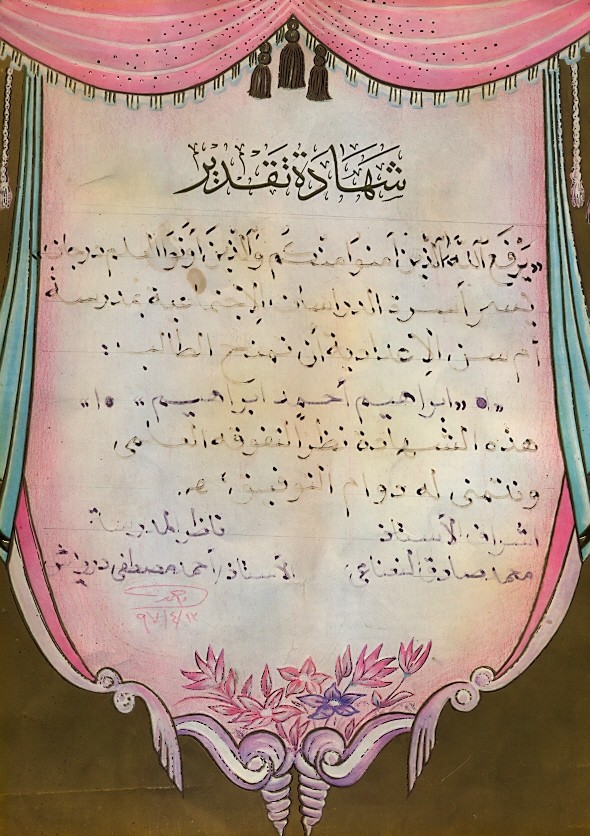 شهادة تقدير
«يرفع الله الذين آمنوا منكم والذين أوتوا العلم درجات»
يسر أسرة الدراسات الإجتماعية بمدرسة
الإعدادية أن تمنح الطالب:
«ابراهيم أحمد ابراهيم»
هذه الشهادة نظراً لتفوقه العلمى
ونتمنى له دوام التوفيق؛
إشراف الأستاذ
ناظر المدرسة
محمد صادق
الأستاذ/ أحمد مصطفى درويش
٩٧/٤/١٢